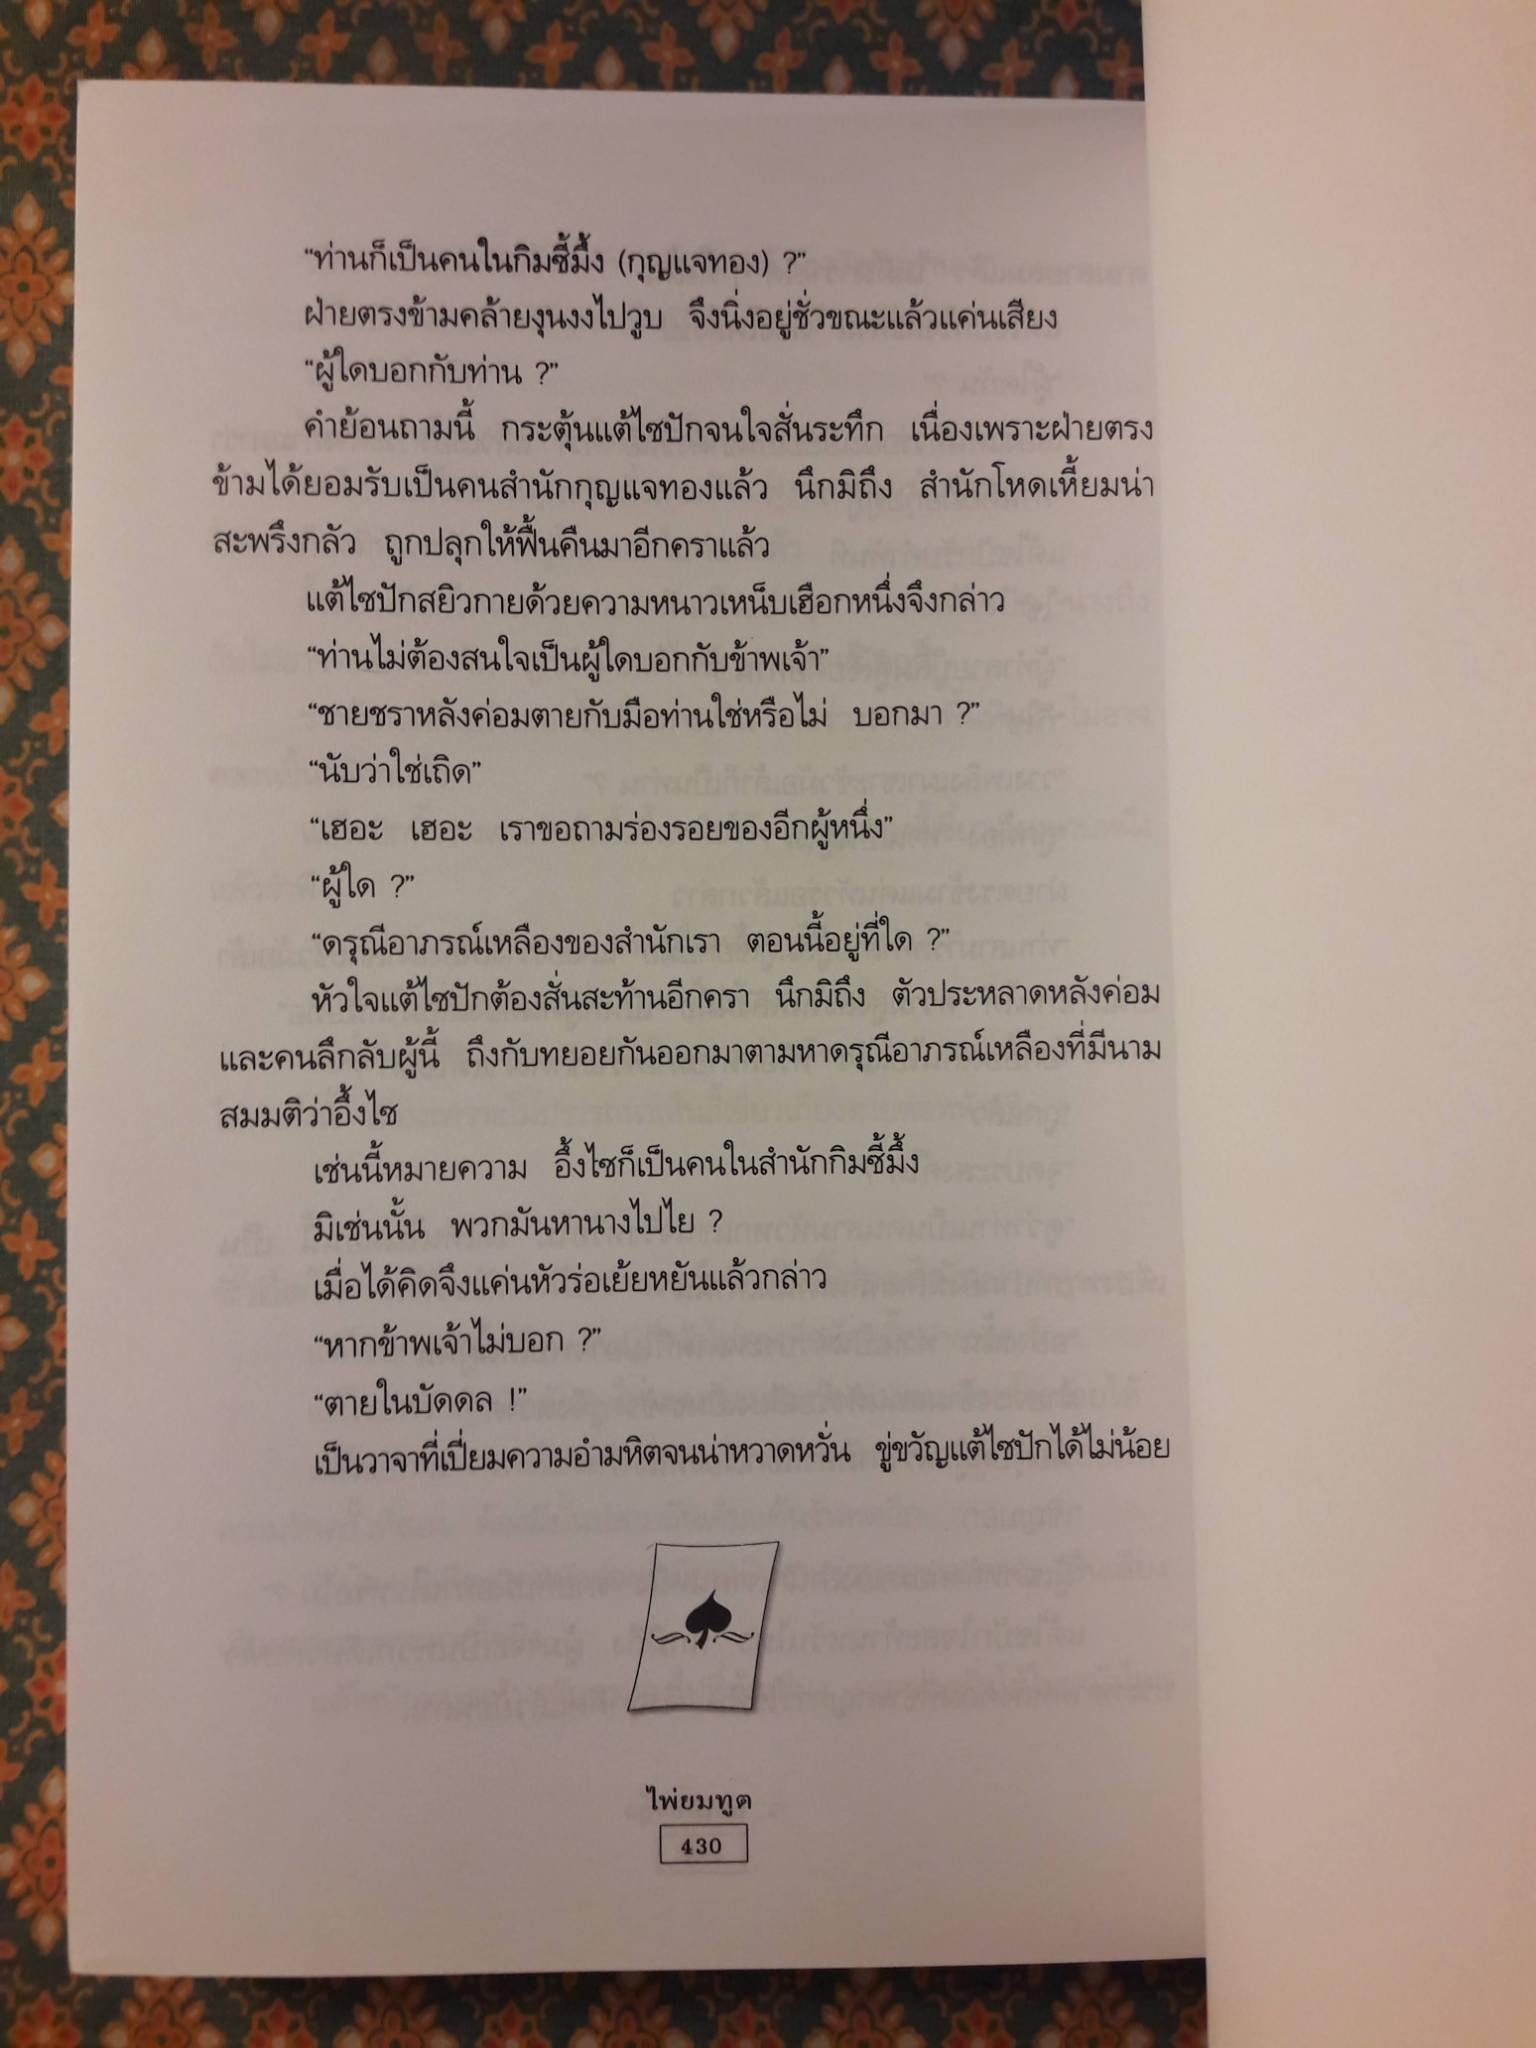 “ท่านก็เป็นคนในกิมซี้มึ้ง (กุญแจทอง) ?”
ฝ่ายตรงข้ามคล้ายงุนงงไปวูบ จึงนิ่งอยู่ชั่วขณะแล้วแค่นเสียง
“ผู้ใดบอกกับท่าน ?”
คำย้อนถามนี้ กระตุ้นแต้ไซปักจนใจสั่นระทึก เนื่องเพราะฝ่ายตรง
ข้ามได้ยอมรับเป็นคนสำนักกุญแจทองแล้ว นึกมิถึง สำนักโหดเหี้ยมน่า
สะพรึงกลัว ถูกปลุกให้ฟื้นคืนมาอีกคราแล้ว
แต้ไซปักสยิวกายด้วยความหนาวเหน็บเฮือกหนึ่งจึงกล่าว
“ท่านไม่ต้องสนใจเป็นผู้ใดบอกกับข้าพเจ้า”
“ชายชราหลังค่อมตายกับมือท่านใช่หรือไม่ บอกมา ?”
“นับว่าใช่เถิด”
“เฮอะ เฮอะ เราขอถามร่องรอยของอีกผู้หนึ่ง”
“ผู้ใด ?”
“ดรุณีอาภรณ์เหลืองของสำนักเรา ตอนนี้อยู่ที่ใด ?”
หัวใจแต้ไซปักต้องสั่นสะท้านอีกครา นึกมิถึง ตัวประหลาดหลังค่อม
และคนลึกลับผู้นี้ ถึงกับทยอยกันออกมาตามหาดรุณีอาภรณ์เหลืองที่มีนาม
สมมติว่าอึ้งไซ
เช่นนี้หมายความ อึ้งไซก็เป็นคนในสำนักกิมซี้มึ้ง
มิเช่นนั้น พวกมันหานางไปไย ?
เมื่อได้คิดจึงแค่นหัวร่อเย้ยหยันแล้วกล่าว
“หากข้าพเจ้าไม่บอก ?”
“ตายในบัดดล !”
เป็นวาจาที่เปี่ยมความอำมหิตจนน่าหวาดหวั่น ขู่ขวัญแต้ไซปักได้ไม่น้อย
ไพ่ยมทูต
430